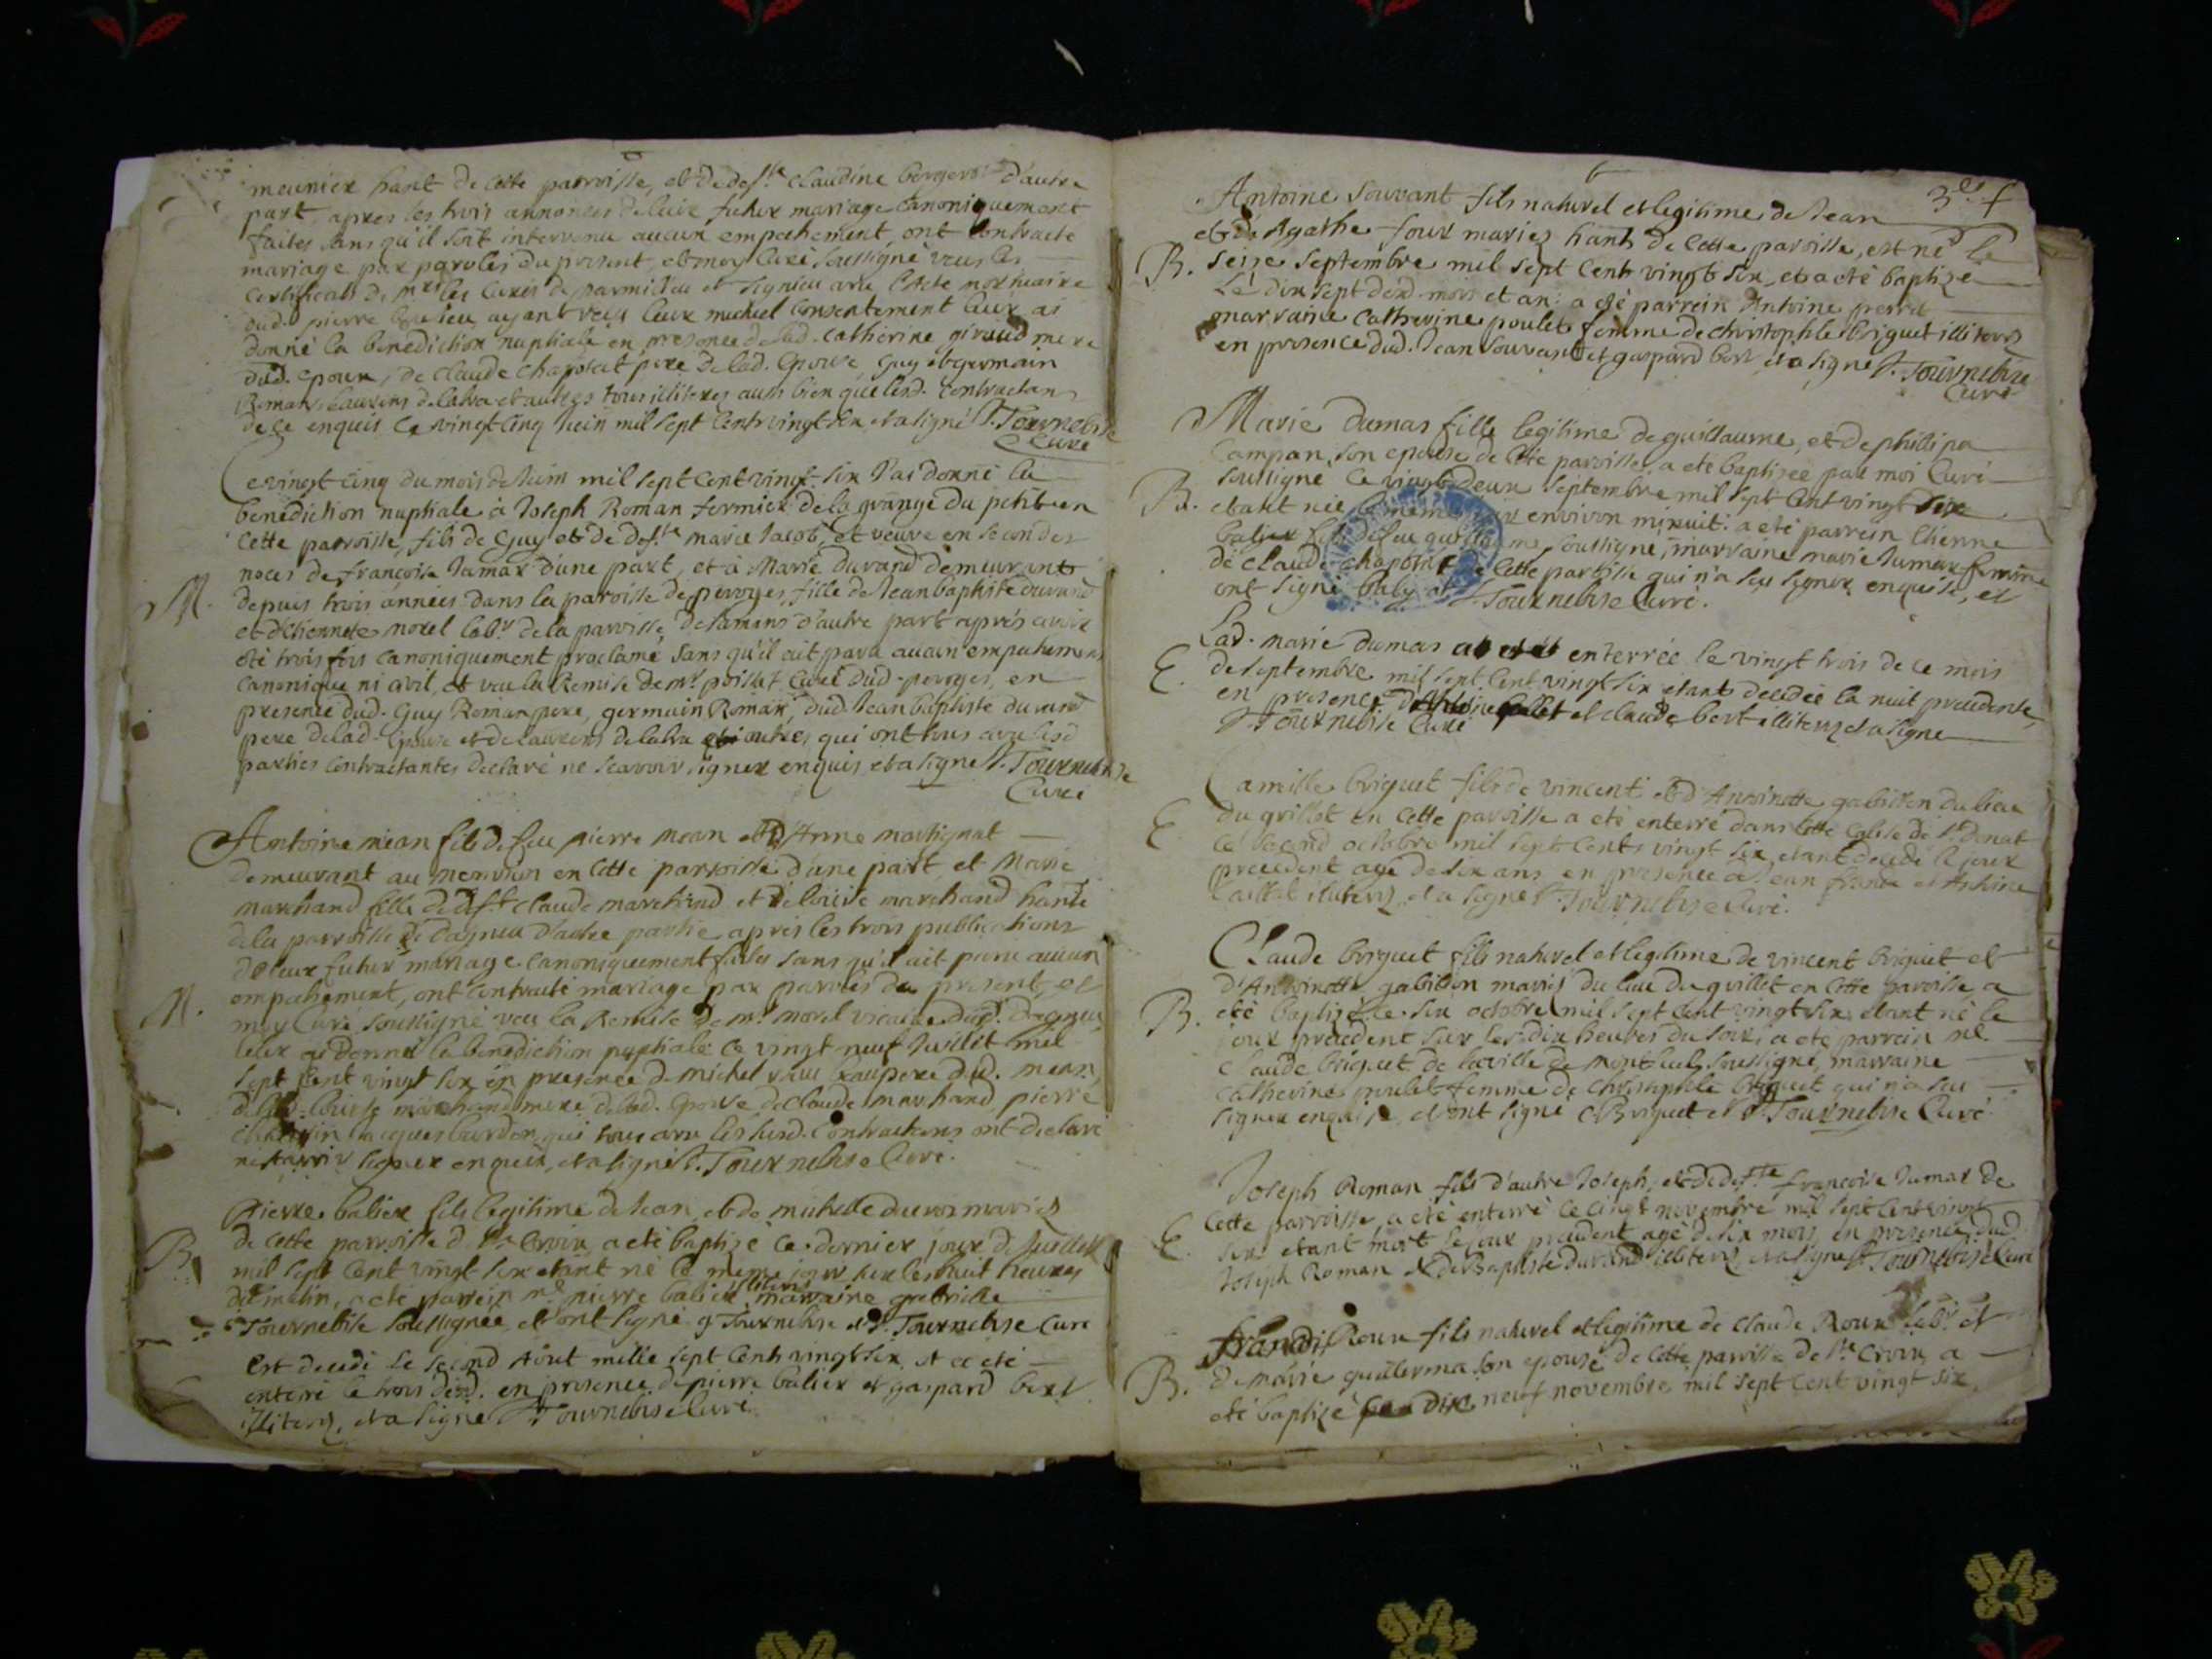 meunier hant de cette parroisse, et de desfte claudine bergeron d'autre
part, apres les trois annonces de leur futur mariage canoniquement
faites sans qu'il soit intervenu aucun empechement, ont contracté
mariage par paroles du present, et moy curé soussigné veus les
certificats de mrs les curés de parmilieu et signieu avec l'acte mortuaire
dud. pierre ayant veu leur mutuel consentement leur ai
donné la benediction nuptiale en presence de lad. catherine giraud mere
dud. epoux, de claude chapotat pere de lad. epouse, guy et germain
Roman, laurens delalva et autres tous illiteres aussi bien que lesd. contractans
de ce enquis ce vingt cinq juin mil sept cent vingt six et a signé Tournebise
Curé
Ce vingt cinq du mois de juin mil sept cent vingt six j'ai donné la
benediction nuptiale à Joseph Roman fermier de la grange du petit en
cette parroisse, fils de Guy et de desfte marie Jacob, et veuve en secondes
noces de françoise Jamar d'une part, et à Marie durand demeurant
M. depuis trois années dans la paroisse de peroges, fille de Jean baptiste durand
et d'etiennete morel labr de la paroisse d'autre part aprés avoir
été trois fois canoniquement proclamé sans qu'il ait paru aucun empechement
canonique ni civil, et veu la Remise de mr poisat curé dud. peroges, en
presence dud. Guy Roman pere, germain Roman, dud. Jean baptiste durand
pere de lad. epouse et de laurens delalva autres qui ont tous avec lesd.
parties contractantes declaré ne sçavoir signer enquis et a signé Tournebise
Curé
Antoine mean fils de feu pierre mean et d'Anne martignat
demeurant au en cette parroisse d'une part, et Marie
marchand fille de desft claude marchand et de loüise marchand hants
de la parroisse de dagneu d'autre partie aprés les trois publications
de leur futur mariage canoniquement faites sans qu'il ait paru aucun
M. empechement, ont contracté mariage par paroles du present, et
moy curé soussigné veu la Remise de mr morel vicaire dud. dagneu,
leur ai donné la benediction nuptiale ce vingt neuf Juillet mil
sept cent vingt six en presence de michel beaupere dud. mean,
de lad. loüise marchand mere de lad. epouse de claude marchand pierre
Jacques bardon qui tous avec les susd. contractans ont declaré
ne sçavoir signer enquis, et a signé Tournebise Curé.
Pierre balier fils legitime de Jean, et de michelle mariés
B. de cette parroisse de Ste Croix a eté baptisé ce dernier jour de Juillet
mil sept cent vingt six etant né le meme jour sur les huit heures
du matin, a eté parrein pierre balier illiteré, marraine gabrielle
Tournebise soussignée, et ont signé g Tournebise et Tournebise Curé
est decedé le second Aout mille sept cent vingt six, et a eté
enterré le trois dud. en presence de pierre balier et gaspard bert
illiterez, et a signé Tournebise Curé.
3e f
Antoine souvant fils naturel et legitime de Jean
et de Agathe four mariez hants de cette paroisse, est né le
B. seize septembre mil sept cent vingt six, et a eté baptizé
Le dix sept dud. mois et an: a eté parrein Antoine perret
marraine Catherine poulet femme de christophle Briguet illiterez
en presence dud. Jean souvant et gaspard bert et a signé Tournebise
Curé
Marie dumas fille legitime de guillaume, et de phillipa
Campan son epouse de cette paroisse, a eté baptisée par moi Curé
soussigné ce vingt deux septembre mil sept cent vingt six
B. etant née environ minuit: a eté parrein Etienne
soussigné, marraine marie Jumar femme
de claude chapotat de cette paroisse qui n'a sçu signer enquise, et
ont signé baly et Tournebise Curé.
Lad. marie dumas enterrée le vingt trois de ce mois
E. de septembre mil sept cent vingt six etant decedée la nuit precedente,
en presence et claude bert illiterez et a signé
Tournebise Curé
Camille briguet fils de vincent et d'Antoinette gabillon du lieu
E. du grillet en cette paroisse a eté enterré dans cette eglise de st Donat
ce second octobre mil sept cents vingt six, etant decedé le jour
precedent agé de six ans en presence de Jean france et Antoine
illiterez, et a signé Tournebise Curé.
Claude briguet fils naturel et legitime de vincent briguet et
d'Antoinette gabillon mariés du lieu du grillet en cette paroisse a
B. eté baptizé le six octobre mil sept cent vingt six etant né le
jour precedent sur les dix heures du soir, a eté parrein me
claude briguet de la ville de montluel soussigné, marraine
catherine poulet femme de christophle briguet qui n'a sçu
signer enquise, et ont signé C Briguet et Tournebise Curé.
Joseph Roman fils d'autre Joseph, et de desfte françoise Jumar de
E. cette parroisse, a eté enterré le cinq novembre mil sept cent vingt
six etant mort le jour precedent agé de six mois, en presence dud.
Joseph Roman et de Baptiste durand illiterez, et a signé Tournebise Curé
françois Roux fils naturel et legitime de claude Roux labr et
B. de marie guillerma son epouse de cette paroisse de ste Croix a
eté baptizé dix neuf novembre mil sept cent vingt six